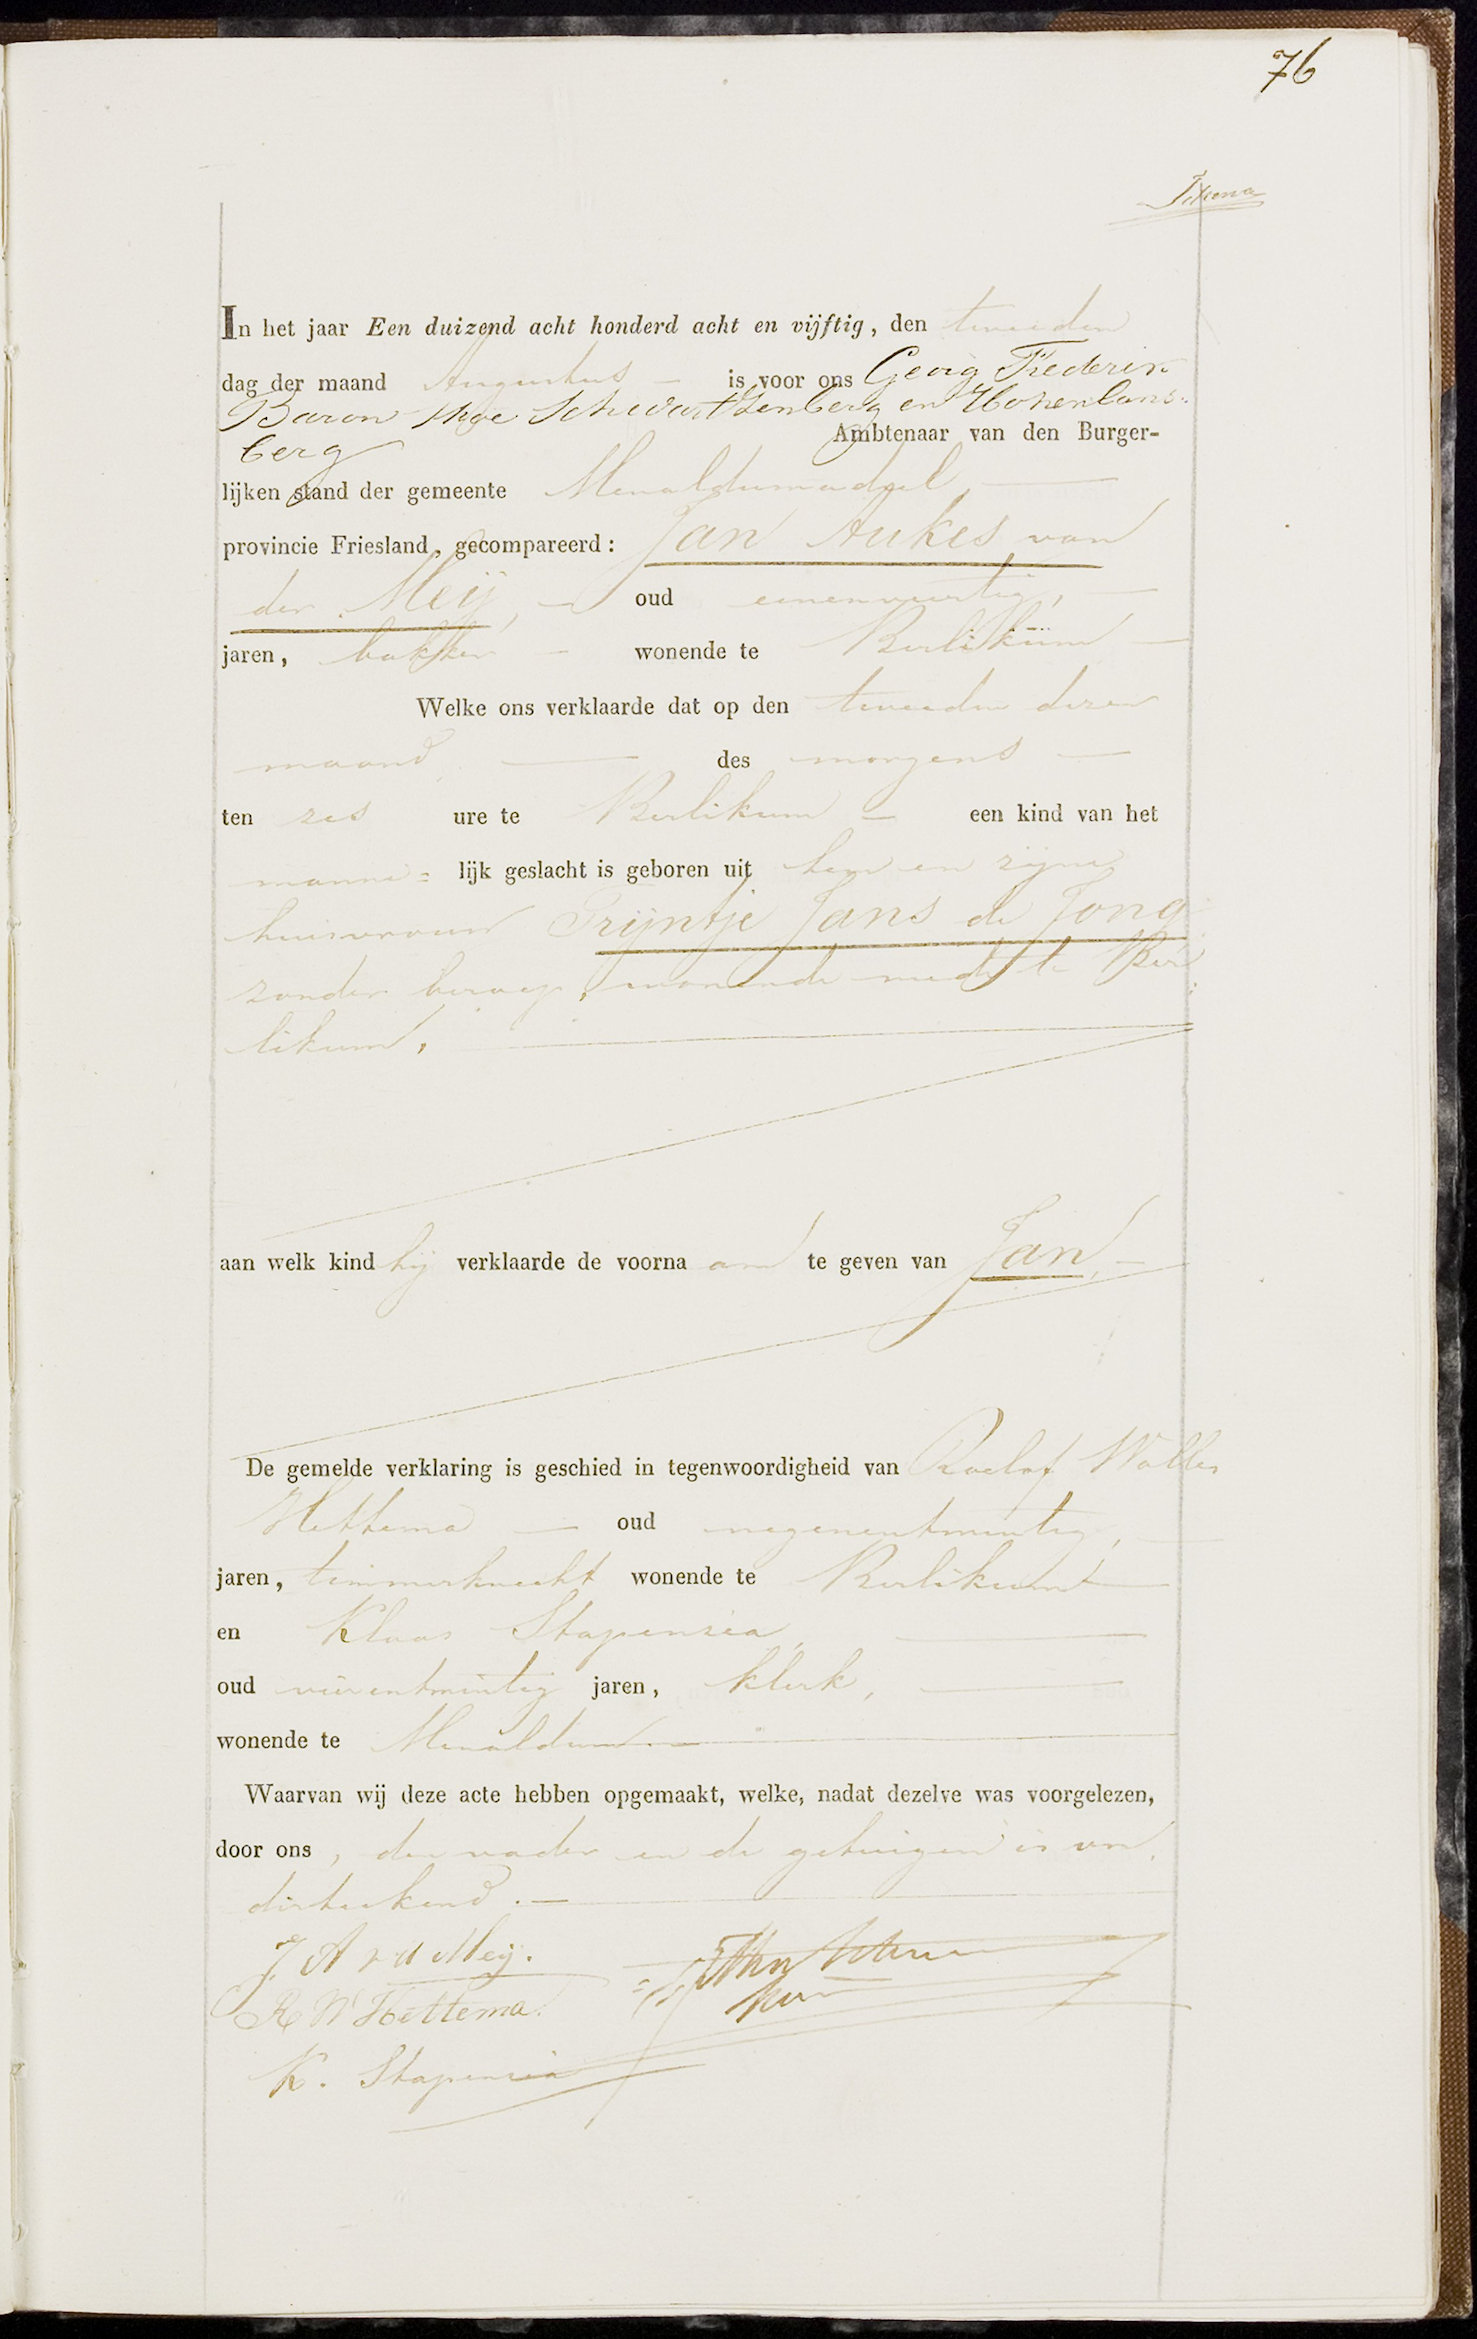 76
In het jaar Een duizend acht honderd acht en vijftig, den tweeden
dag der maand Augustus – is voor ons Georg Frederik
Baron thoe Schwartzenberg en Hohenlans-
berg Ambtenaar van den Burger-
lijken stand der gemeente Menaldumadeel, —
provincie Friesland, gecompareerd: Jan Aukes van
der Meij, – oud eenenveertig, –
jaren, bakker – wonende te Berlikum –
Welke ons verklaarde dat op den tweeden dezer
maand, — des morgens —
ten zes ure te Berlikum – een kind van het
manne= lijk geslacht is geboren uit hem en zijne
huisvrouw Trijntje Jans de Jong
zonder beroep, wonende mede te Ber
likum,
aan welk kind hij verklaarde de voorna am te geven van Jan, –
De gemelde verklaring is geschied in tegenwoordigheid van Roelof Wobbes
Hettema — oud negenentwintig, —
jaren, timmerknecht wonende te Berlikum —
en Klaas Stapensea, —
oud vierentwintig jaren, klerk, —
wonende te Menaldum —
Waarvan wij deze acte hebben opgemaakt, welke, nadat dezelve was voorgelezen,
door ons, den vader en de getuigen is on
derteekend. —
J A v d Meij.
R W Hettema
K. Stapensea